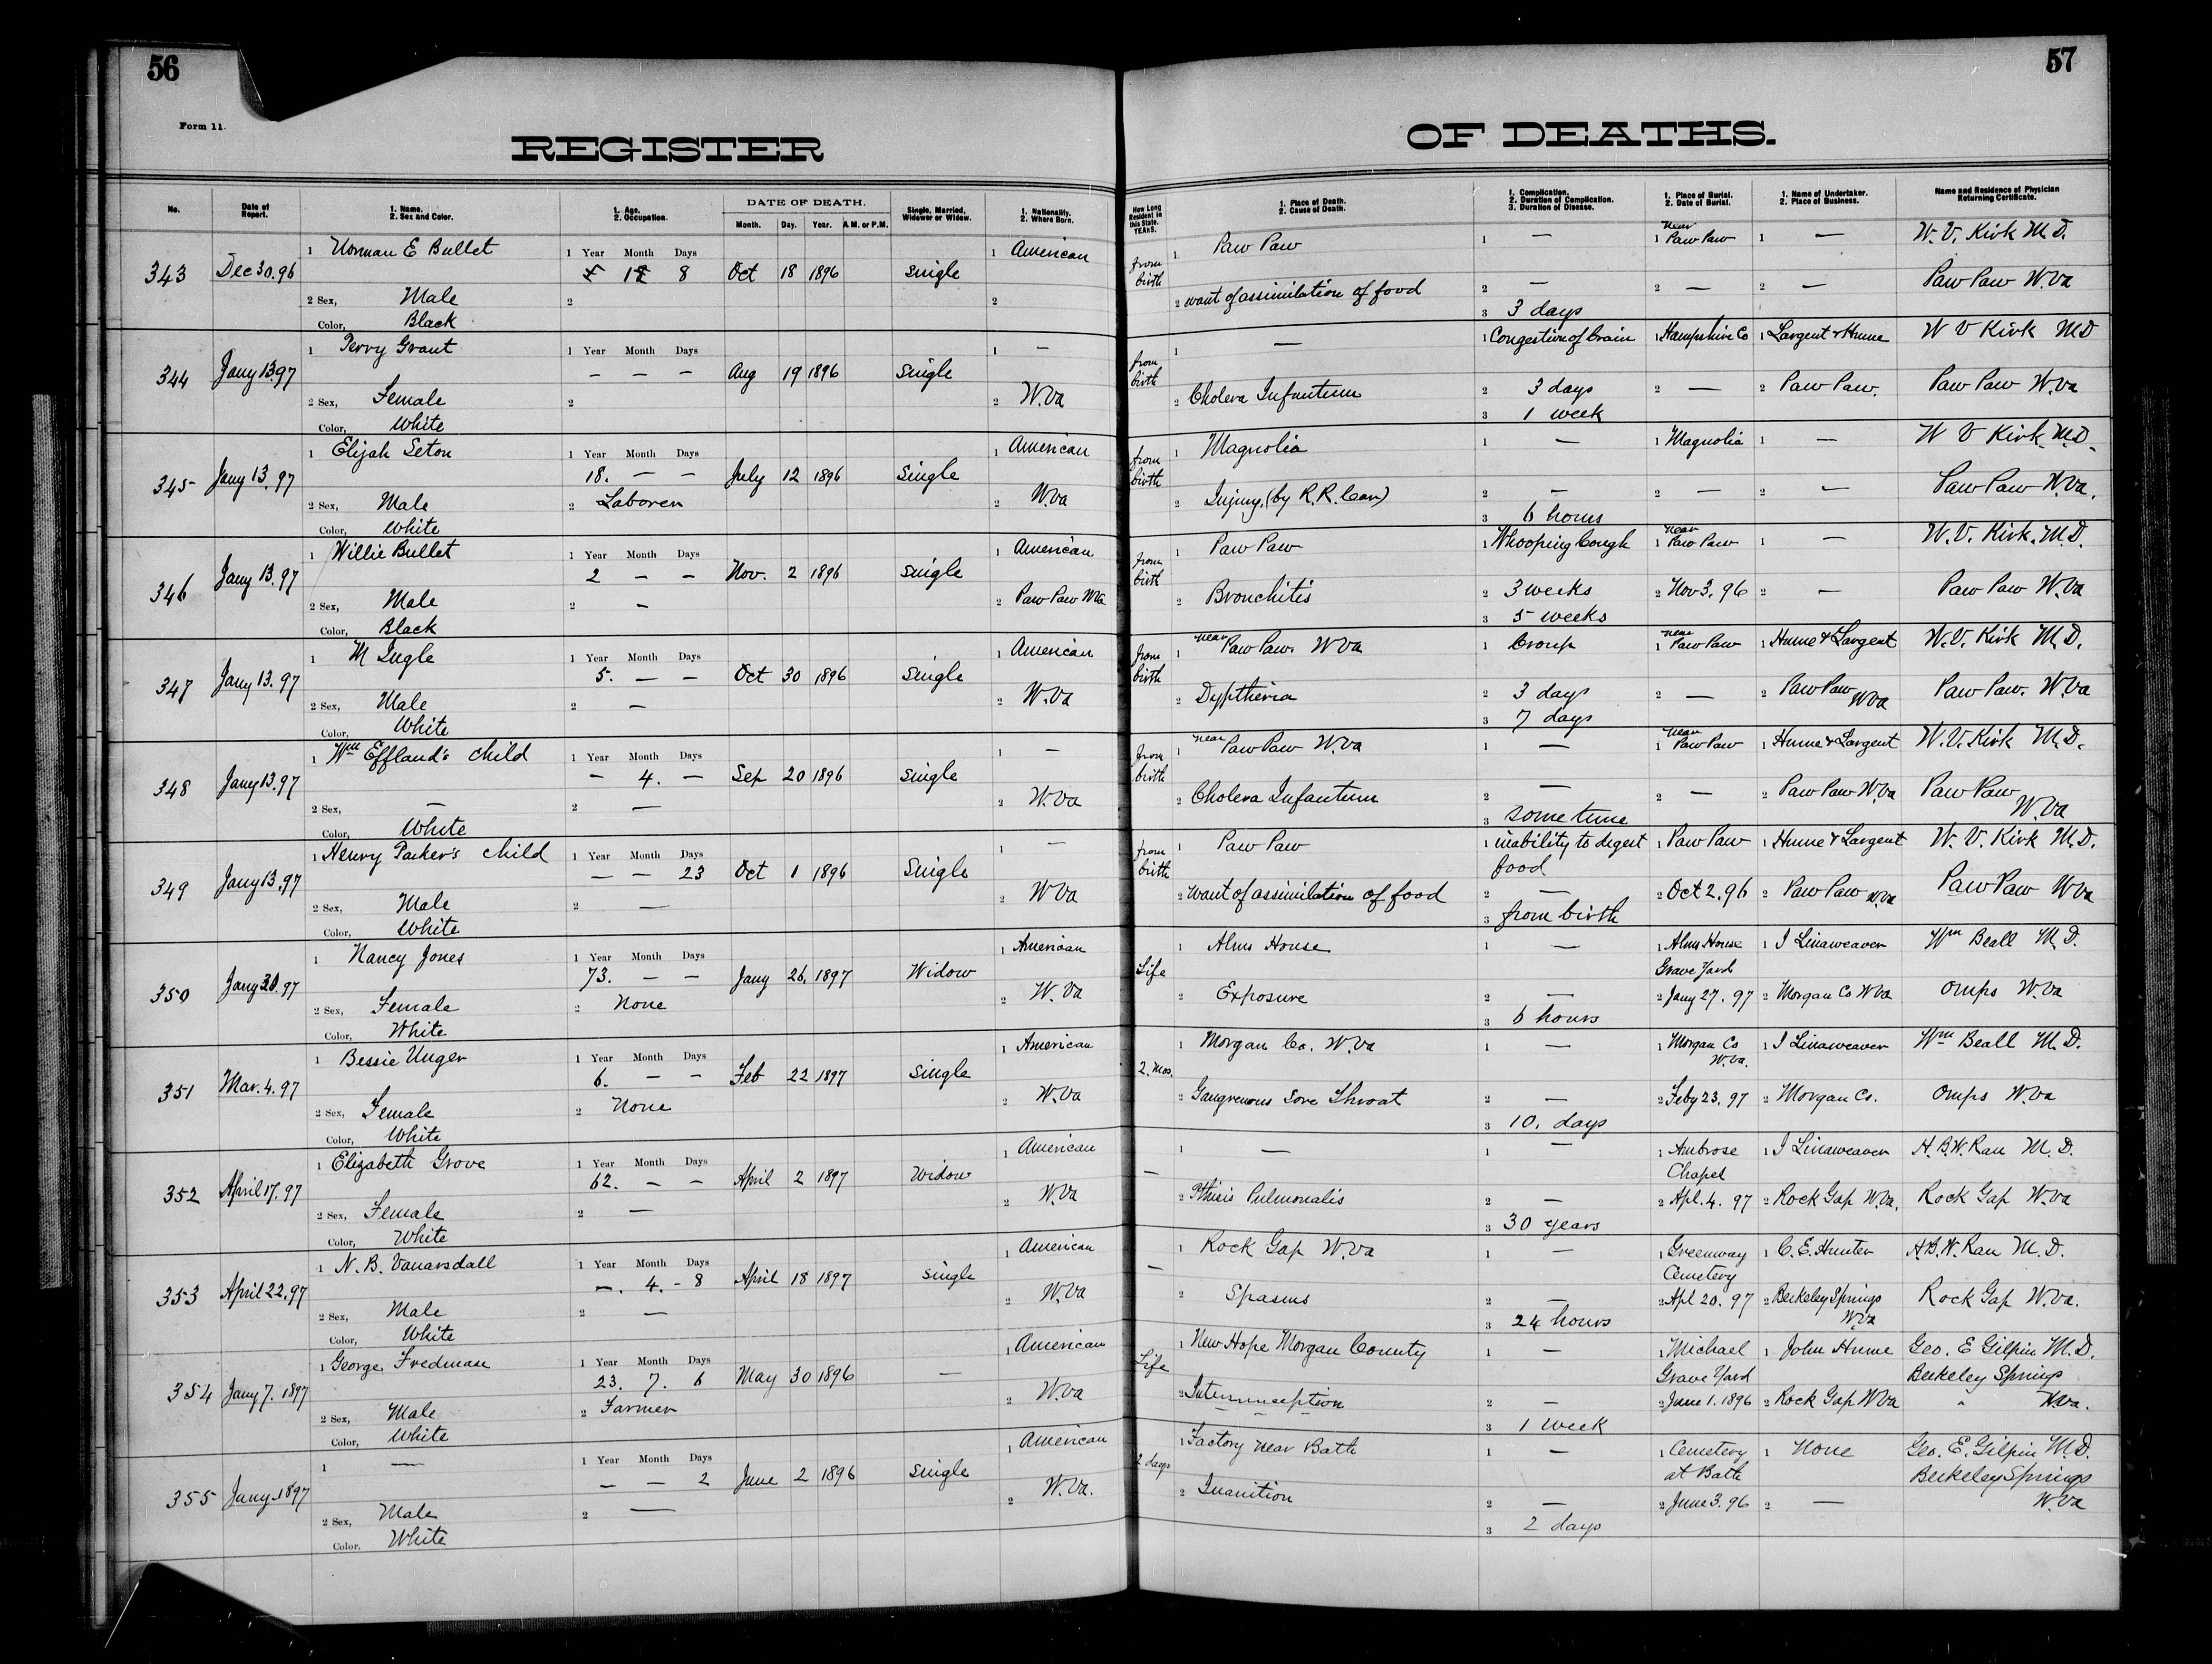 56
57
Form 11.
REGISTER OF DEATHS.
No.
Date of Report.
1. Name.
2. Sex and Color.
1. Age.
2. Occupation.
DATE OF DEATH.
Month. Day. Year. A.M. or P.M.
Single, Married, Widower or Widow.
1. Nationality.
2. Where Born.
How Long Resident in this State. YEARS.
1. Place of Death.
2. Cause of Death.
1. Complication.
2. Duration of Complication.
3. Duration of Disease.
1. Place of Burial.
2. Date of Burial.
1. Name of Undertaker.
2. Place of Business.
Name and Residence of Physician Returning Certificate.
343 Dec 30.96 1 Norman E Bullet 1 Year Month Days 8 Oct 18 1896 Single 1 American from birth 1 Paw Paw 1 — 1 near Paw Paw 1 — W. V. Kirk M.D.
2 Sex, Male 2 2 2 want of assimilation of food 2 — 2 — 2 — Paw Paw W.Va
Color, Black 3 3 days
344 Jany 13.97 1 Perry Grant 1 Year Month Days — — — Aug 19 1896 Single 1 — from birth 1 — 1 Congestion of brain 1 Hampshire Co 1 Largent & Hume W V Kirk MD
2 Sex, Female 2 2 W.Va 2 Cholera Infantum 2 3 days 2 — 2 Paw Paw. Paw Paw W.Va
Color, White 3 1 week
345 Jany 13.97 1 Elijah Seton 1 Year Month Days 18. — — July 12 1896 Single 1 American from birth 1 Magnolia 1 — 1 Magnolia 1 — W V Kirk M.D.
2 Sex, Male 2 Laborer 2 W.Va 2 Injury (by R.R. Car) 2 — 2 — 2 — Paw Paw W.Va.
Color, White 3 6 hours
346 Jany 13.97 1 Willie Bullet 1 Year Month Days 2 — — Nov. 2 1896 Single 1 American from birth 1 Paw Paw 1 Whooping Cough 1 near Paw Paw 1 — W. V. Kirk. M.D.
2 Sex, Male 2 — 2 Paw Paw WVa 2 Bronchitis 2 3 weeks 2 Nov 3. 96 2 — Paw Paw W.Va
Color, Black 3 5 weeks
347 Jany 13.97 1 M Ingle 1 Year Month Days 5. — — Oct 30 1896 Single 1 American from birth 1 near Paw Paw. WVa 1 Croup 1 near Paw Paw 1 Hume & Largent W. V. Kirk M.D.
2 Sex, Male 2 — 2 W.Va 2 Dyptheria 2 3 days 2 — 2 Paw Paw WVa Paw Paw. W.Va
Color, White 3 7 days
348 Jany 13.97 1 Wm Effland's child 1 Year Month Days — 4. — Sep 20 1896 Single 1 — from birth 1 near Paw Paw W.Va 1 — 1 near Paw Paw 1 Hume & Largent W. V. Kirk M.D.
2 Sex, — 2 — 2 W.Va 2 Cholera Infantum 2 — 2 — 2 Paw Paw W.Va Paw Paw W.Va
Color, White 3 some time
349 Jany 13.97 1 Henry Parker's child 1 Year Month Days — — 23 Oct 1 1896 Single 1 — from birth 1 Paw Paw 1 inability to digest food 1 Paw Paw 1 Hume & Largent W. V. Kirk M.D.
2 Sex, Male 2 — 2 WVa 2 want of assimilation of food 2 — 2 Oct 2. 96 2 Paw Paw W.Va Paw Paw WVa
Color, White 3 from birth
350 Jany 30.97 1 Nancy Jones 1 Year Month Days 73. — — Jany 26. 1897 Widow 1 American Life 1 Alms House 1 — 1 Alms House Grave Yard 1 I Linaweaver Wm Beall M.D.
2 Sex, Female 2 None 2 W.Va 2 Exposure 2 — 2 Jany 27. 97 2 Morgan Co WVa Omps W.Va
Color, White 3 6 hours
351 Mar. 4. 97 1 Bessie Unger 1 Year Month Days 6. — — Feb 22 1897 Single 1 American 2. Mos. 1 Morgan Co. W.Va 1 — 1 Morgan Co W.Va. 1 I Linaweaver Wm Beall M.D.
2 Sex, Female 2 None 2 W.Va 2 Gangrenous Sore Throat 2 — 2 Feby 23. 97 2 Morgan Co. Omps W.Va
Color, White 3 10. days
352 April 17. 97 1 Elizabeth Grove 1 Year Month Days 62. — — April 2 1897 Widow 1 American — 1 — 1 — 1 Ambrose Chapel 1 I Linaweaver A. B. W. Rau M.D.
2 Sex, Female 2 — 2 W.Va 2 Pthisis Pulmonalis 2 — 2 Apl. 4. 97 2 Rock Gap W.Va. Rock Gap W.Va
Color, White 3 30 years
353 April 22. 97 1 N. B. Vanarsdall 1 Year Month Days —. 4. - 8 April 18 1897 Single 1 American — 1 Rock Gap W.Va 1 — 1 Greenway Cemetery 1 C. E. Hunter A. B. W. Rau M.D.
2 Sex, Male 2 — 2 W.Va 2 Spasms 2 — 2 Apl 20. 97 2 Berkeley Springs W.Va Rock Gap W.Va.
Color, White 3 24 hours
354 Jany 7. 1897 1 George Fredman 1 Year Month Days 23. 7. 6 May 30 1896 — 1 American Life 1 New Hope Morgan County 1 — 1 Michael Grave Yard 1 John Hume Geo. E Gilpin M.D. Berkeley Springs
2 Sex, Male 2 Farmer 2 W.Va 2 2 — 2 June 1. 1896 2 Rock Gap WVa " W.Va.
Color, White 3 1 week
355 Jany 1897 1 — 1 Year Month Days — — 2 June 2 1896 Single 1 American 2 days 1 Factory near Bath 1 — 1 Cemetery at Bath 1 None Geo. E. Gilpin M.D. Berkeley Springs
2 Sex, Male 2 — 2 W.Va. 2 Inanition 2 — 2 June 3. 96 2 — W.Va
Color, White 3 2 days